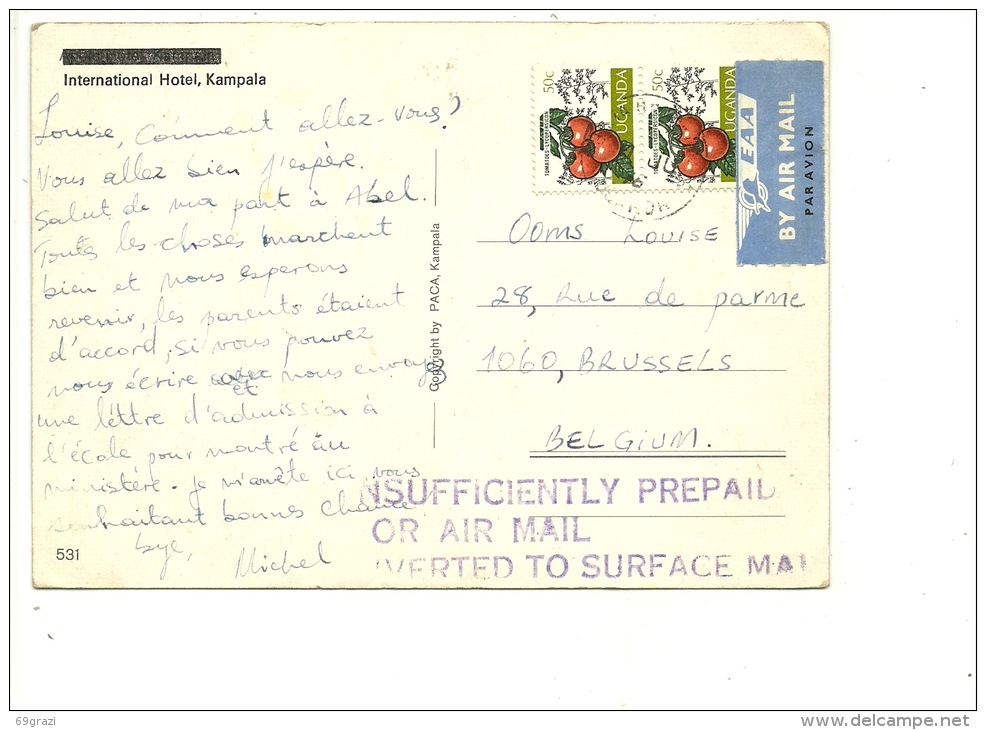 International Hotel, Kampala
Louise, Comment allez-vous?
Vous allez bien j'espère.
Salut de ma part à Abel.
Toutes les choses marchent
bien et nous esperons
revenir, les parents étaient
d'accord, si vous pouvez
nous écrire et nous envoyé
une léttre d'admission à
l'école pour montré au
ministére. Je m'arrête ici, vous
souhaitant bonnes chance
bye,
Michel
531
Copyright by PACA, Kampala
50c
UGANDA
TOMATOES - LYCOPERSICUM
50c
UGANDA
EAA
BY AIR MAIL
PAR AVION
Ooms Louise
28, Rue de parme
1060, BRUSSELS
BELGIUM.
NSUFFICIENTLY PREPAID
OR AIR MAIL
VERTED TO SURFACE MAI
69grazi
delcampe.net